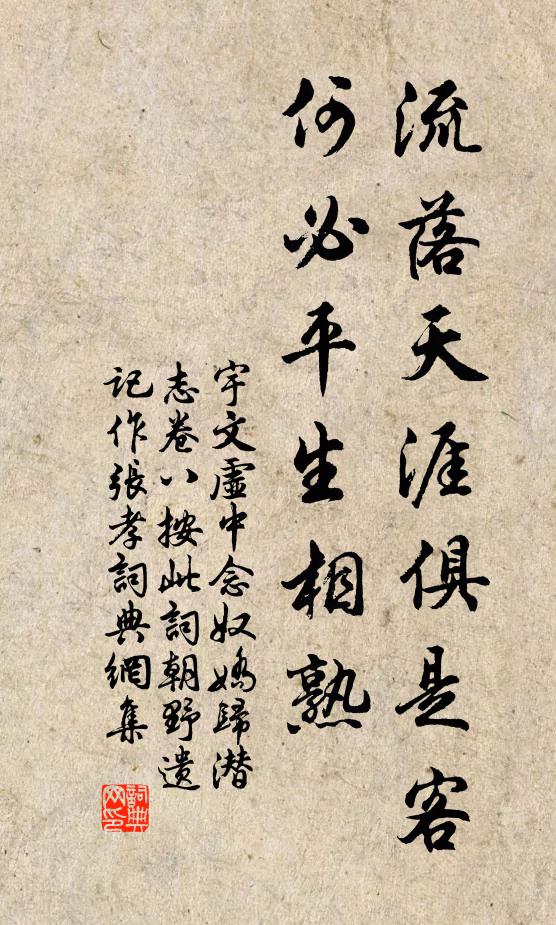 流落天涯俱是客
何必平生相熟
宇文虛中念奴嬌歸潜
志卷八按此詞朝野遺
記作張孝詞典網集
詞典
网印